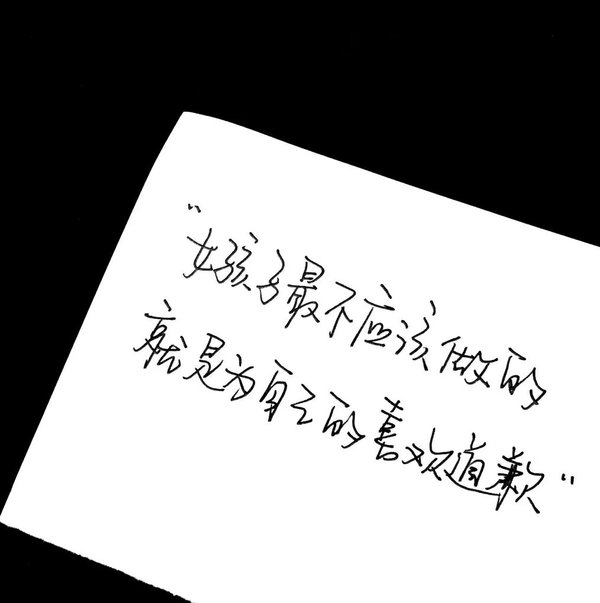 "女孩子最不应该做的
就是为自己的喜欢道歉"